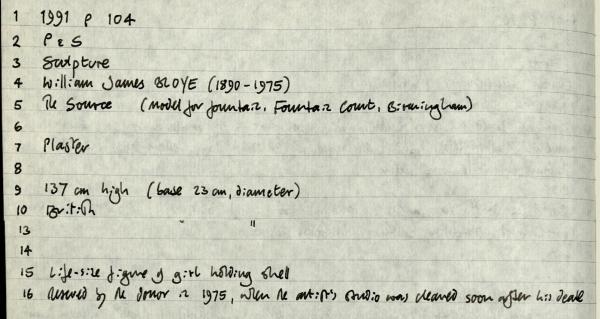 1 1991 P 104
2 P & S
3 Sculpture
4 William James BLOYE (1890-1975)
5 The Source (Model for fountain, Fountain Court, Birmingham)
6
7 Plaster
8
9 137 cm high (base 23 cm, diameter)
10 British
13 "
14
15 Life-size figure of girl holding shell
16 Rescued by the donor in 1975, when the artist's studio was cleared soon after his death